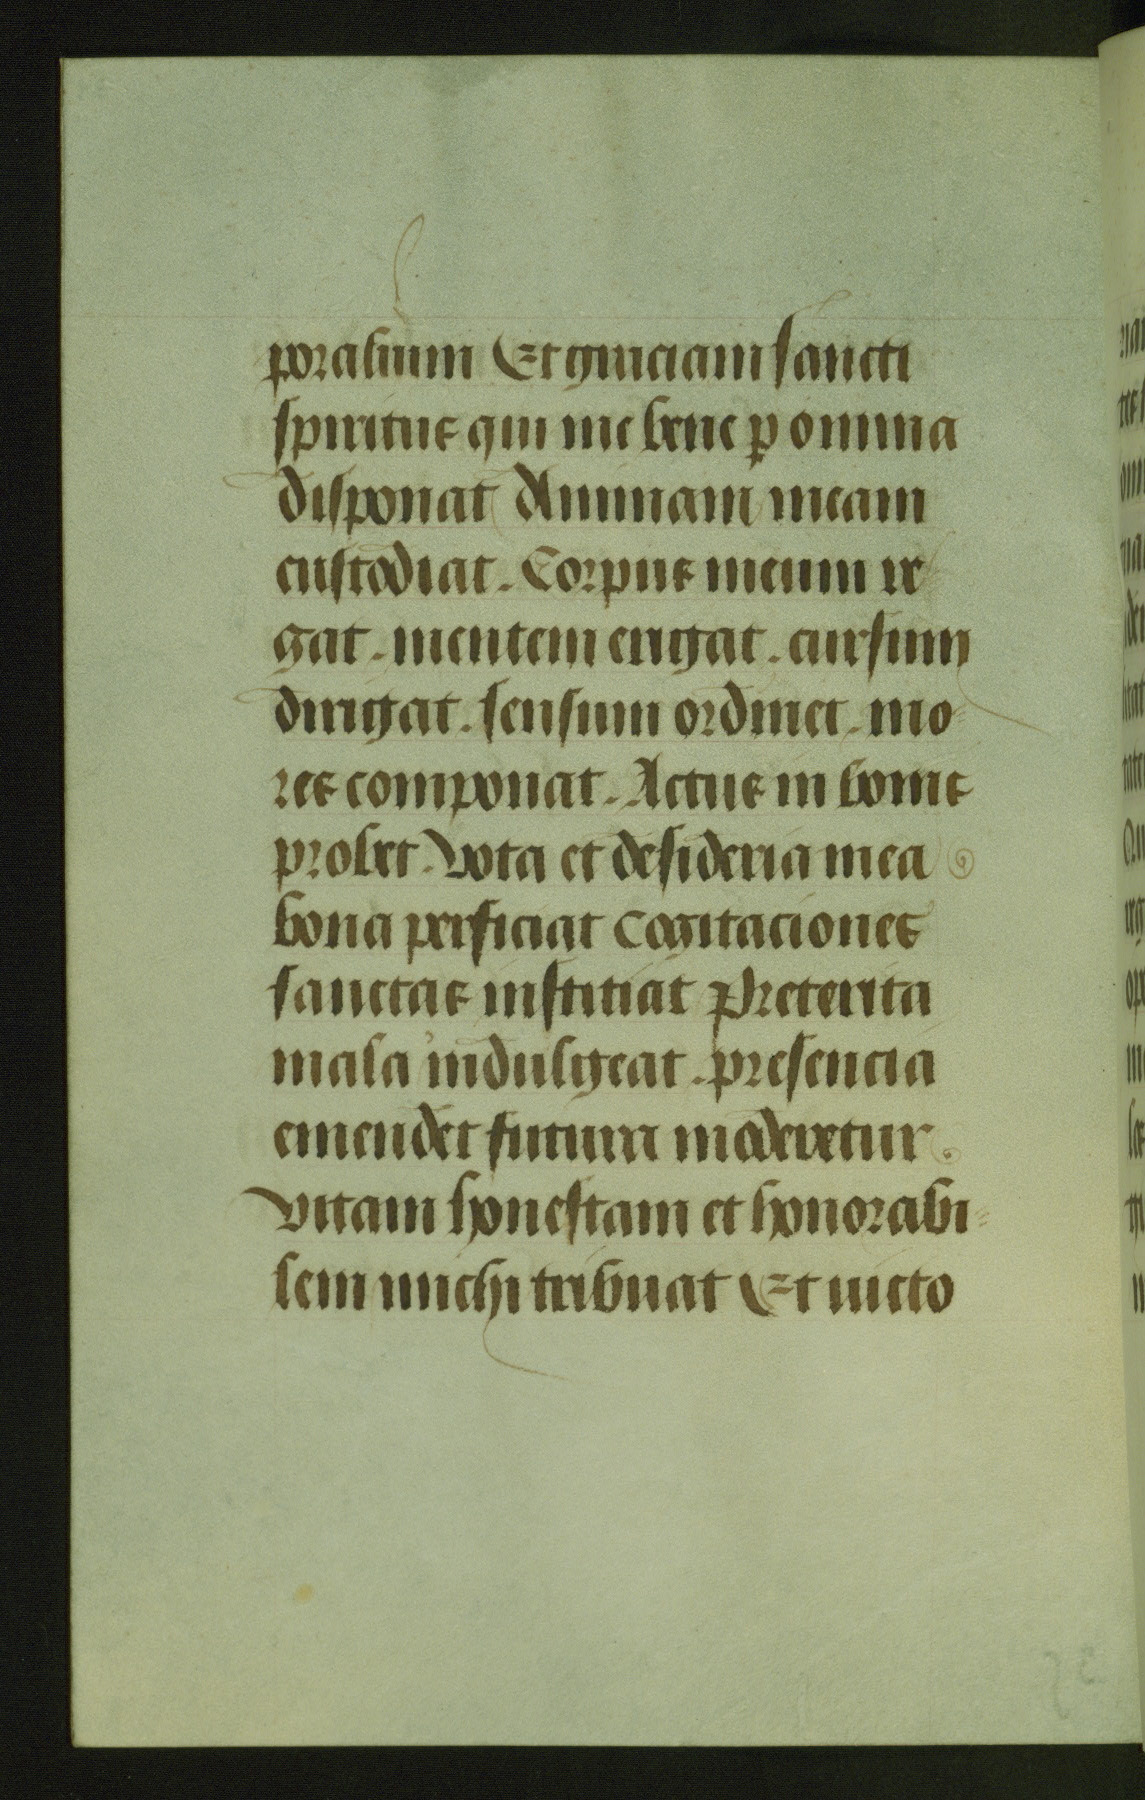 poralium Et graciam sancti
spiritus qui me bene p omnia
disponat Animam meam
custodiat. Corpus meum re
gat. mentem erigat. cursum
dirigat. sensum ordinet. mo
res componat. Actus in bonis
probet. Vota et desideria mea
bona perficiat Cogitaciones
sanctas instituat Preterita
mala indulgeat. presencia
emendet futura moderetur.
Vitam honestam et honorabi=
lem michi tribuat Et victo